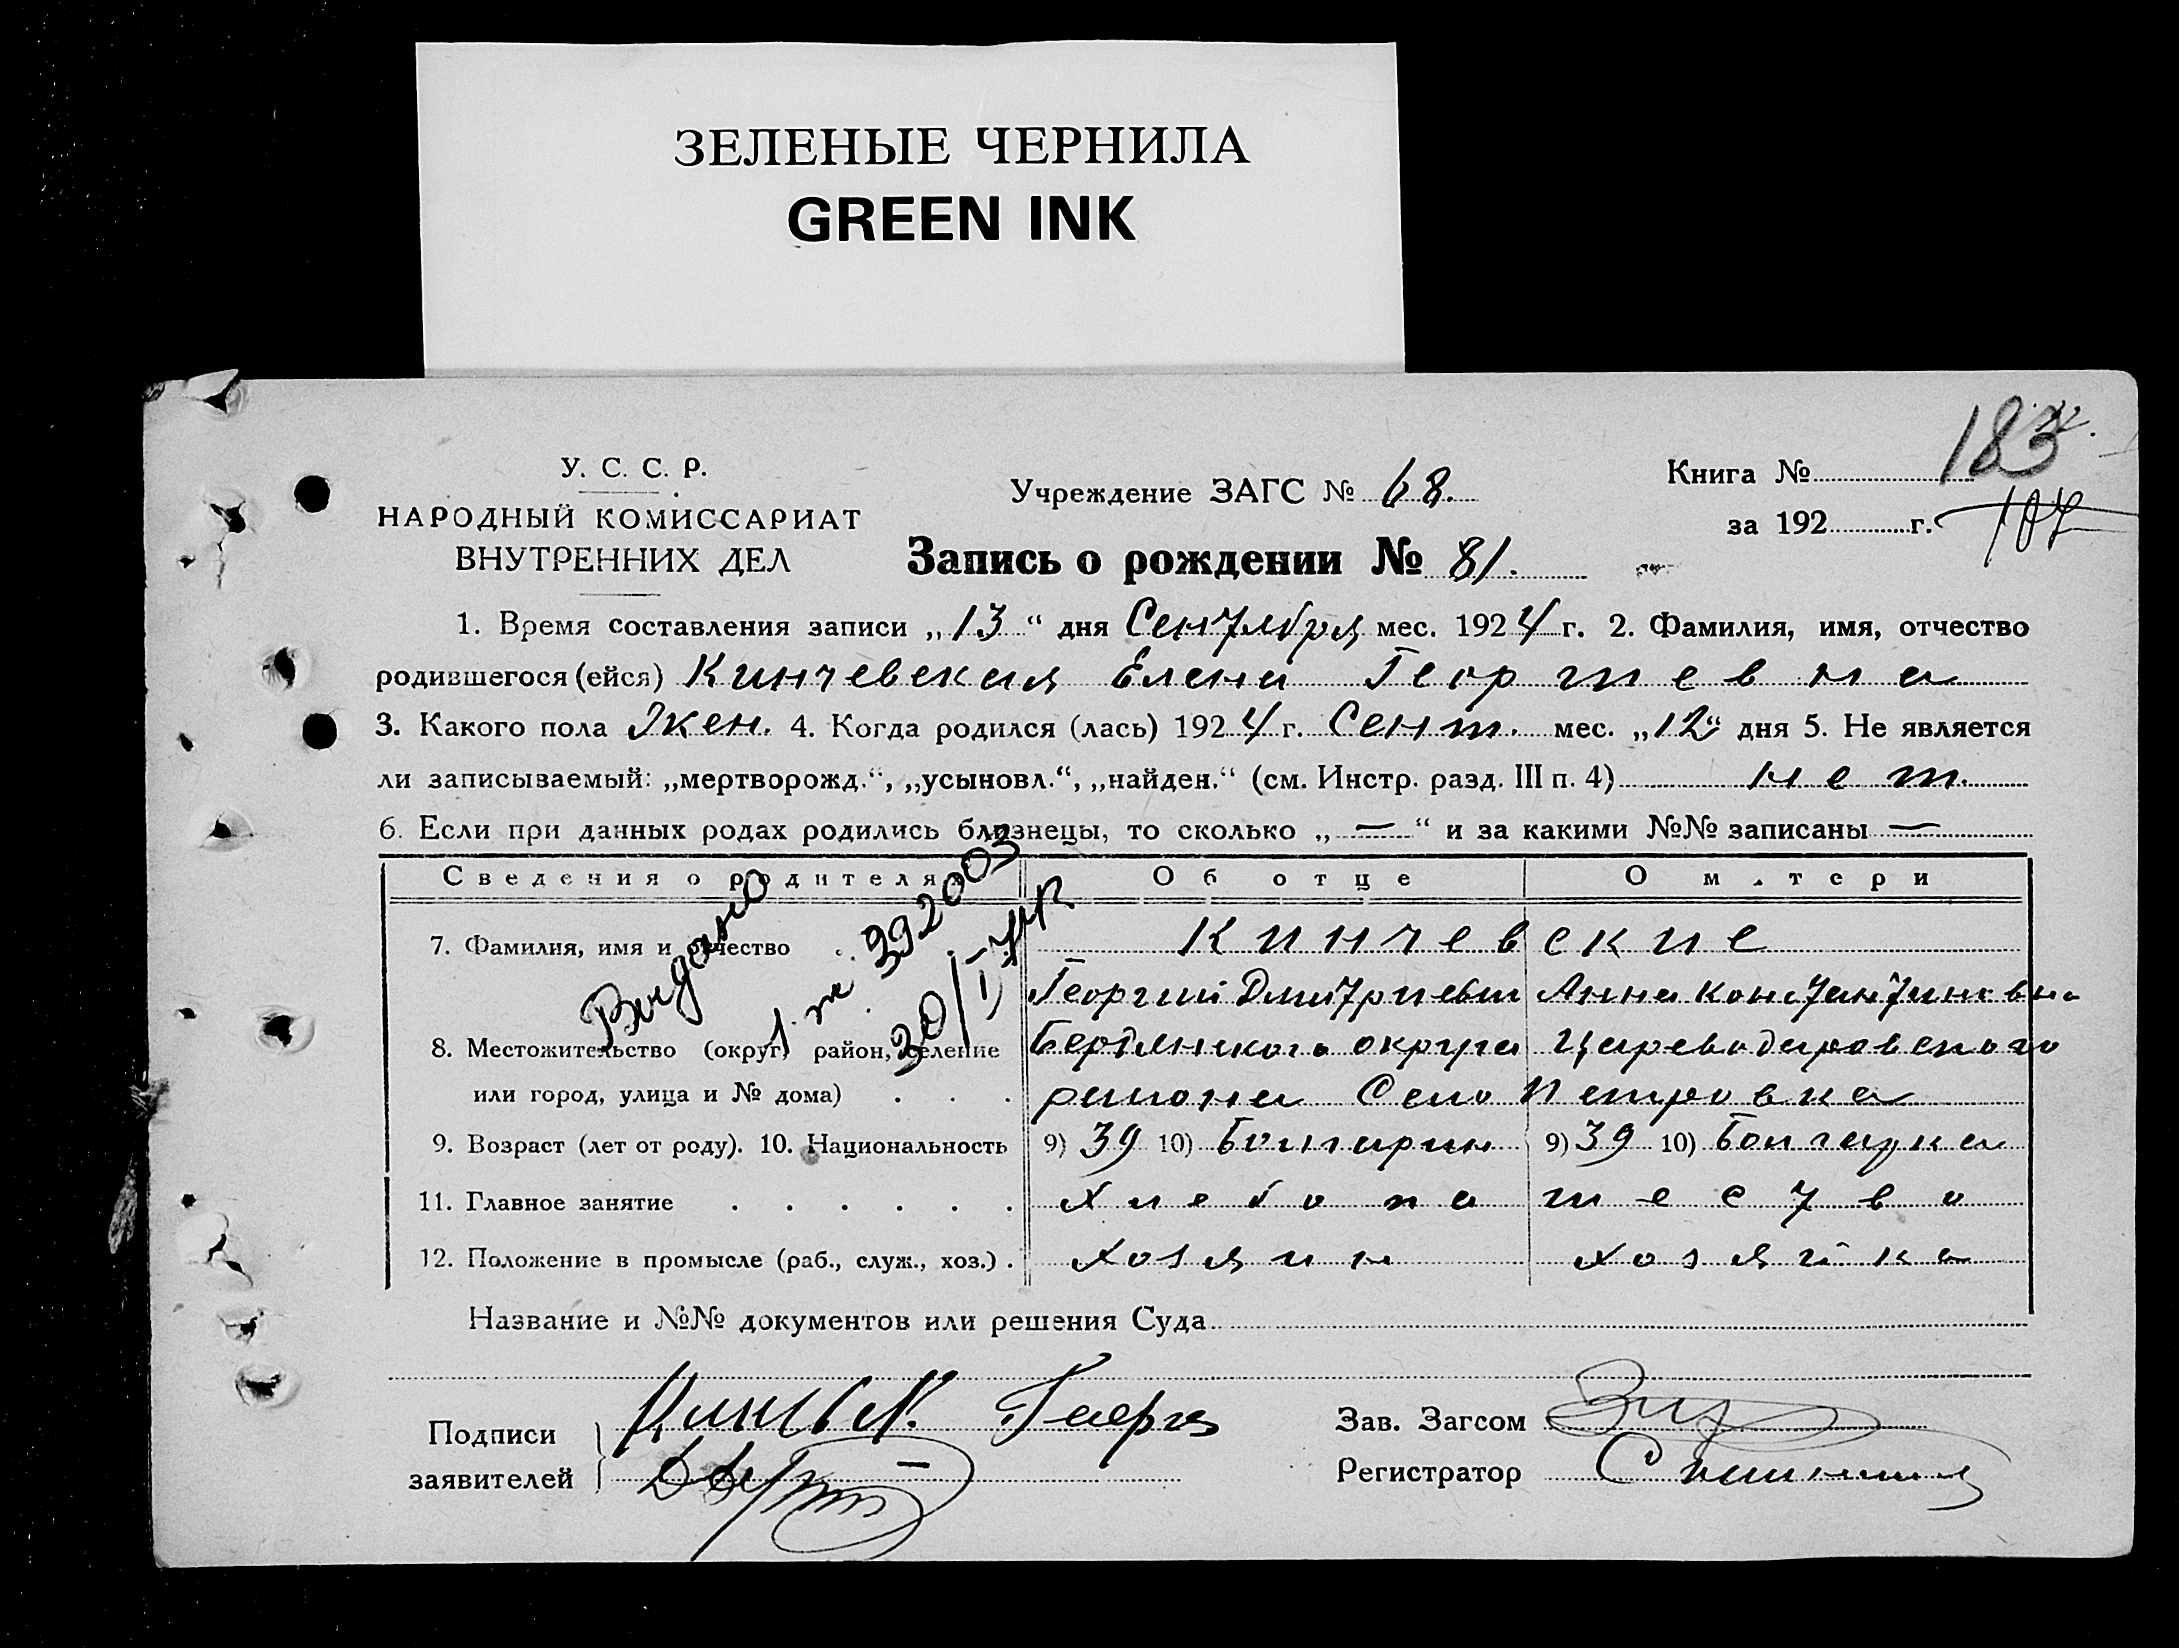 ЗЕЛЕНЫЕ ЧЕРНИЛА
GREEN INK
У. С. С. Р.
НАРОДНЫЙ КОМИССАРИАТ
ВНУТРЕННИХ ДЕЛ
Учреждение ЗАГС № 68.
Запись о рождении № 81.
Книга № 183
за 192 г. 107
1. Время составления записи „13“ дня Сентября мес. 1924 г. 2. Фамилия, имя, отчество
родившегося (ейся) Кинчевская Елена Георгиевна
3. Какого пола Жен. 4. Когда родился (лась) 1924 г. Сент. мес. „12“ дня 5. Не является
ли записываемый: „мертворожд.“, „усыновл.“, „найден.“ (см. Инстр. разд. III п. 4) нет.
6. Если при данных родах родились близнецы, то сколько „—“ и за какими №№ записаны —
Сведения о родителях Об отце О матери
7. Фамилия, имя и отчество Кинчевские
Георгий Дмитриевич Анна Константиновна
8. Местожительство (округ, район, селение Бердянского округа Цареводаровского
или город, улица и № дома) района Село Петровка
9. Возраст (лет от роду). 10. Национальность 9) 39 10) Болгарин 9) 39 10) Болгарка
11. Главное занятие Хлебопашество
12. Положение в промысле (раб., служ., хоз.) хозяин хозяйка
Выдано
392003
Название и №№ документов или решения Суда
Подписи
заявителей
Зав. Загсом
Регистратор